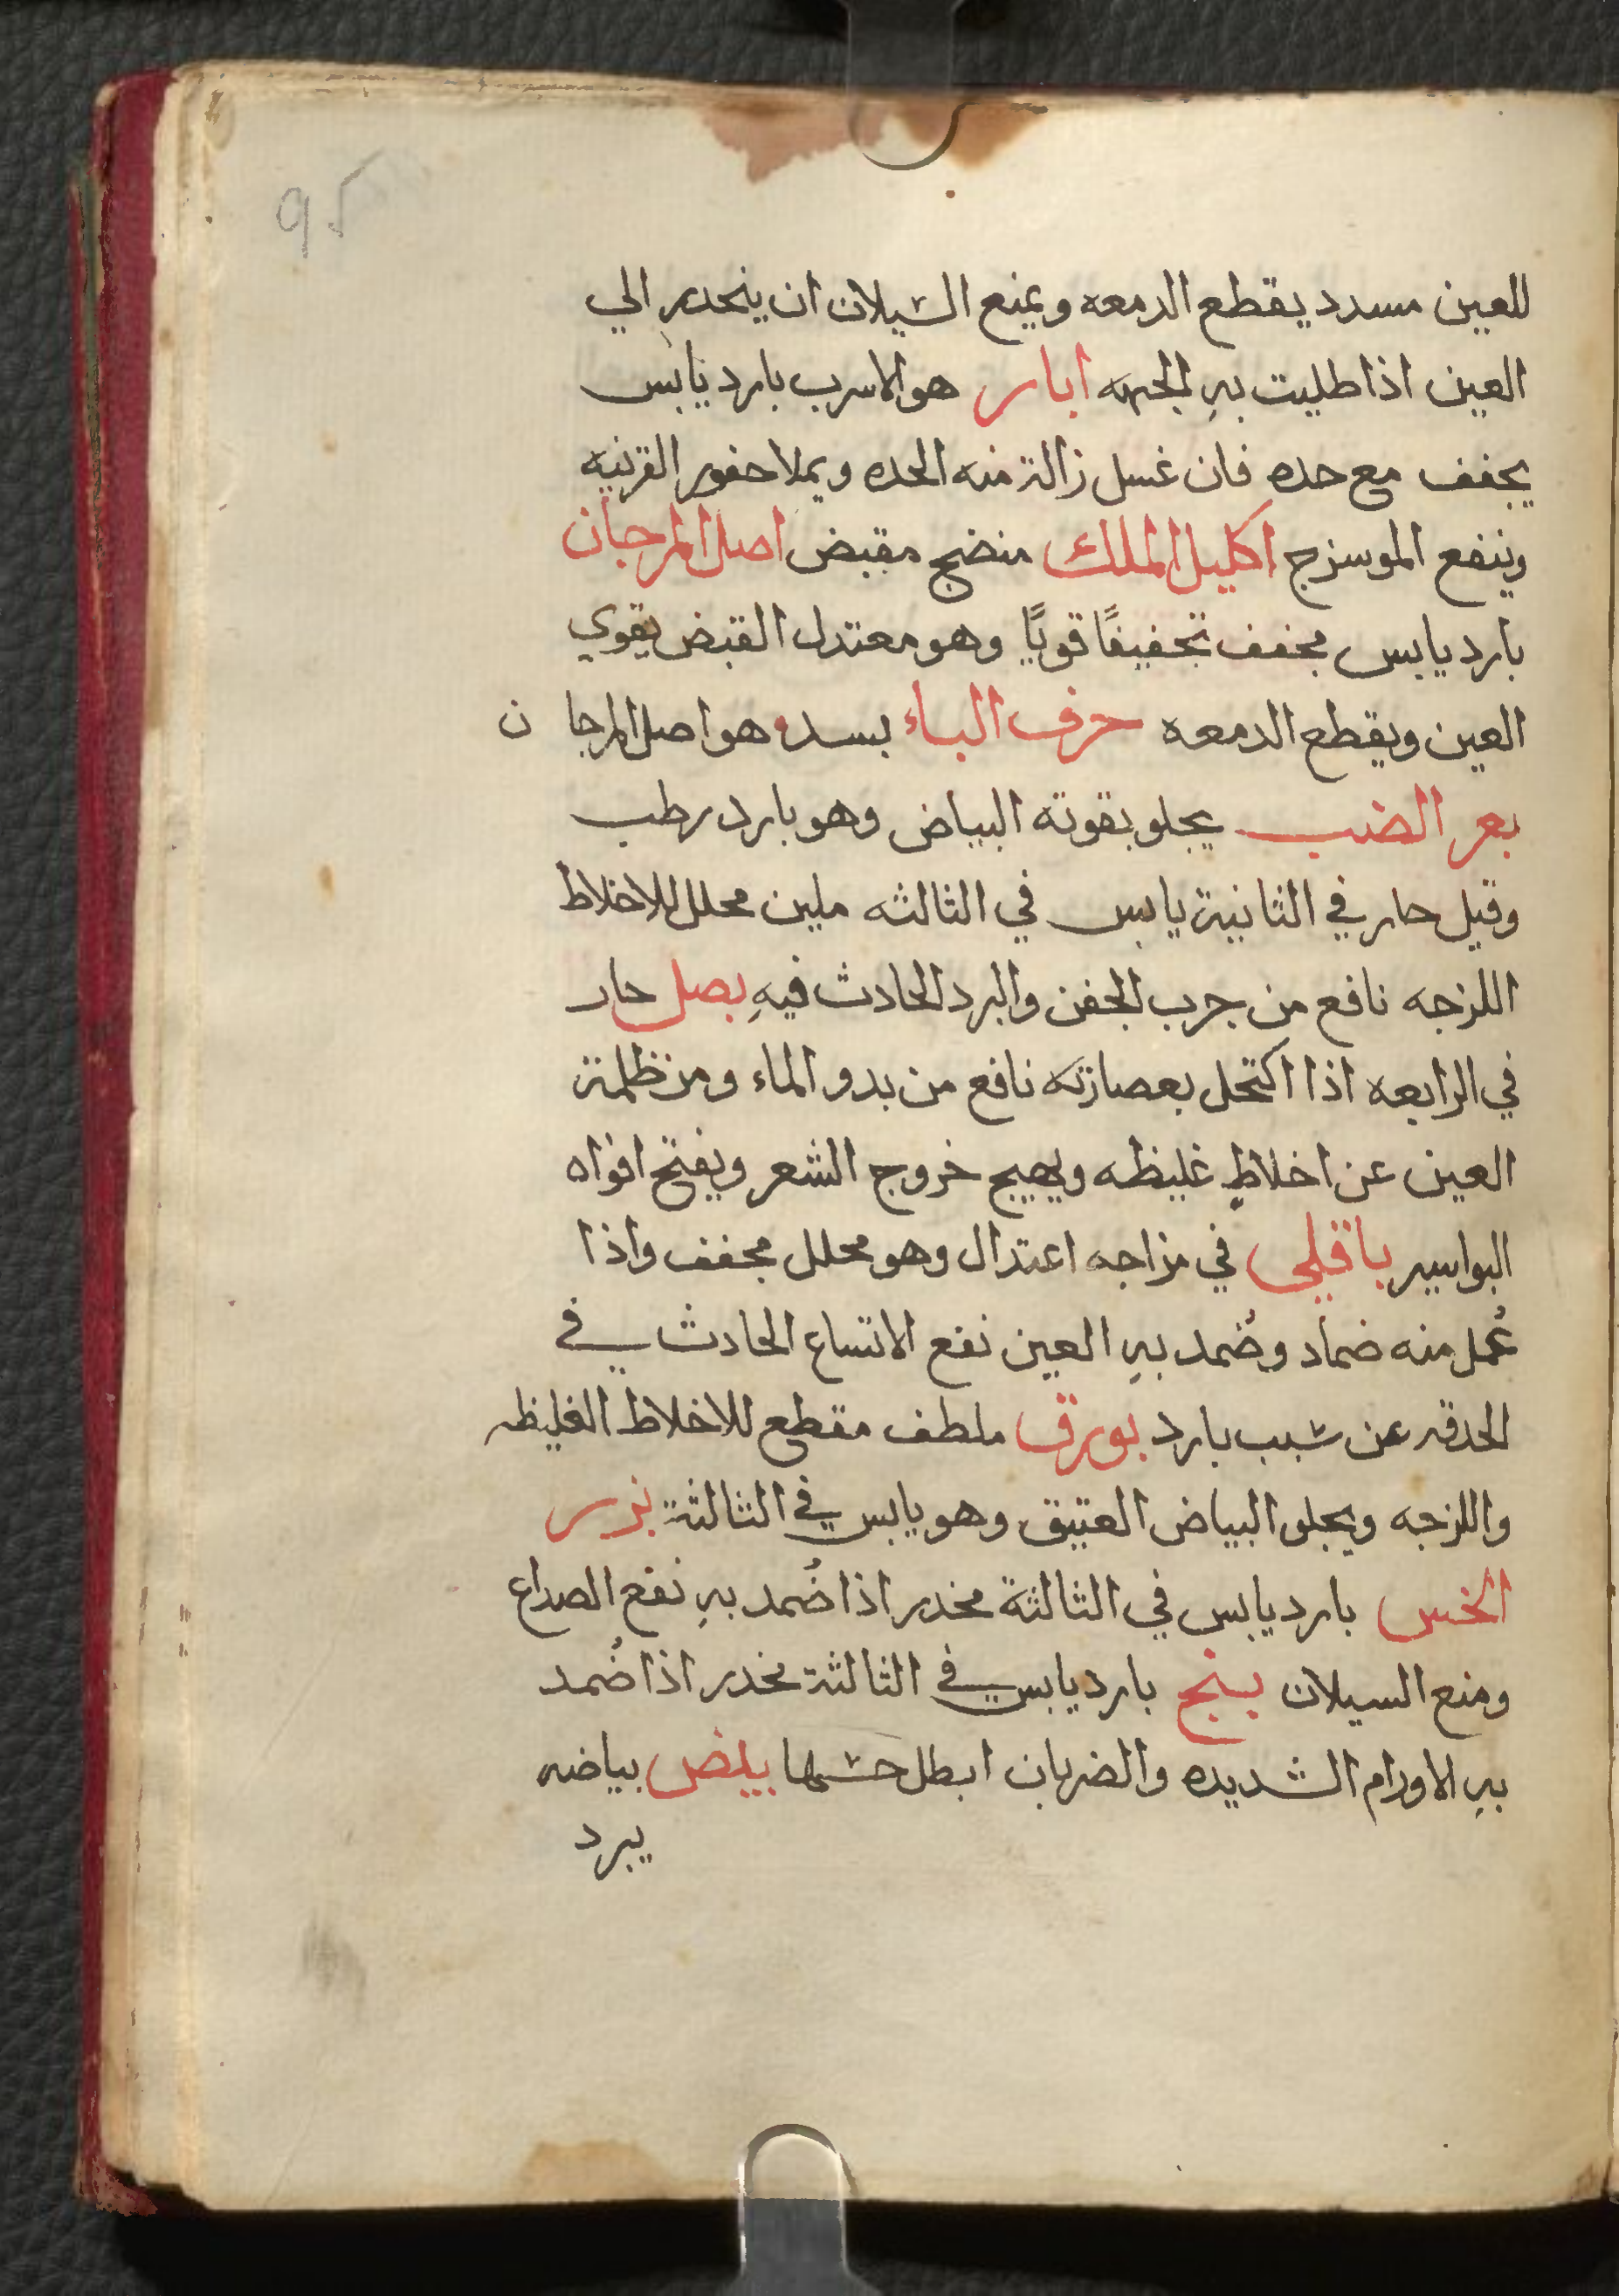 95
للعين مسدد يقطع الدمعه ويمنع السيلان ان ينحدر الي
العين اذا طليت بهِ الجبهه ابار هو الاسرب بارد يابس
يجفف مع حده فان غسل زالة منه الحده ويملا حفور القرنيه
وينفع الموسرج اكليل الملك منضج مقبض اصل المرجان
بارد يابس مجفف تجفيفًا قويًا وهو معتدل القبض يقوي
العين ويقطع الدمعه حرف الباء بسد هو اصل المرجان
بعر الضب يجلو بقوته البياض وهو بارد رطب
وقيل حار في الثانية يابس في الثالثه ملين محلل للاخلاط
اللزجه نافع من جرب الجفن والبرد الحادث فيهِ بصل حار
في الرابعه اذا اكتحل بعصارته نافع من بدو الماء ومن ظلمة
العين عن اخلاطٍ غليظه ويهيج خروج الشعر ويفتح افواه
البواسير باقلي في مزاجه اعتدال وهو محلل مجفف واذا
عُمل منه ضماد وضُمد بهِ العين نفع الاتساع الحادث في
الحدقه عن سبب بارد بورق ملطف مقطع للاخلاط الغليظه
واللزجه ويجلو البياض العتيق وهو يابس في الثالثة بزر
الخس بارد يابس في الثالثة مخدر اذا ضُمد بهِ نفع الصداع
ومنع السيلان بنج بارد يابس في الثالثة مخدر اذا ضُمد
بهِ الاورام الشديده والضربان ابطل حسها بيض بياضه
يبرد